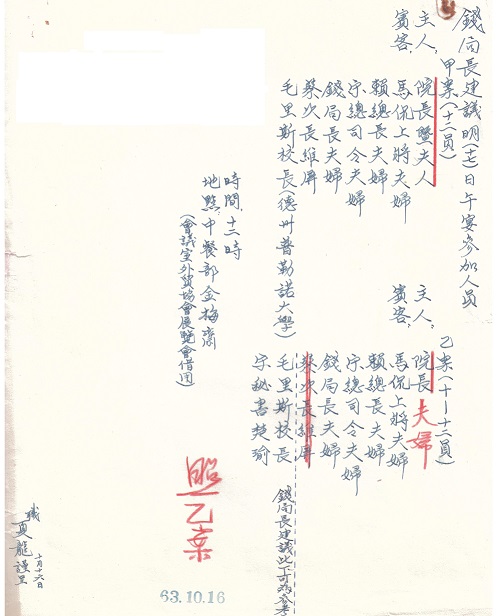 錢局長建議明(十七)日午宴參加人員
甲案(十二員)
主人：院長暨夫人
賓客：馬侃上將夫婦
賴總長夫婦
宋總司令夫婦
錢局長夫婦
蔡次長維屏
毛里斯校長(德州普勒諾大學)
乙案(十一十二員)
主人：院長夫婦
賓客：馬侃上將夫婦
賴總長夫婦
宋總司令夫婦
錢局長夫婦
蔡次長維屏
毛里斯校長
宋秘書楚瑜
錢局長建議此下可為參考
時間：十二時
地點：中餐部金梅齋
(會議室外貿協會展覽會借用)
照乙案
職
夏龍謹呈
十月十六日
63.10.16